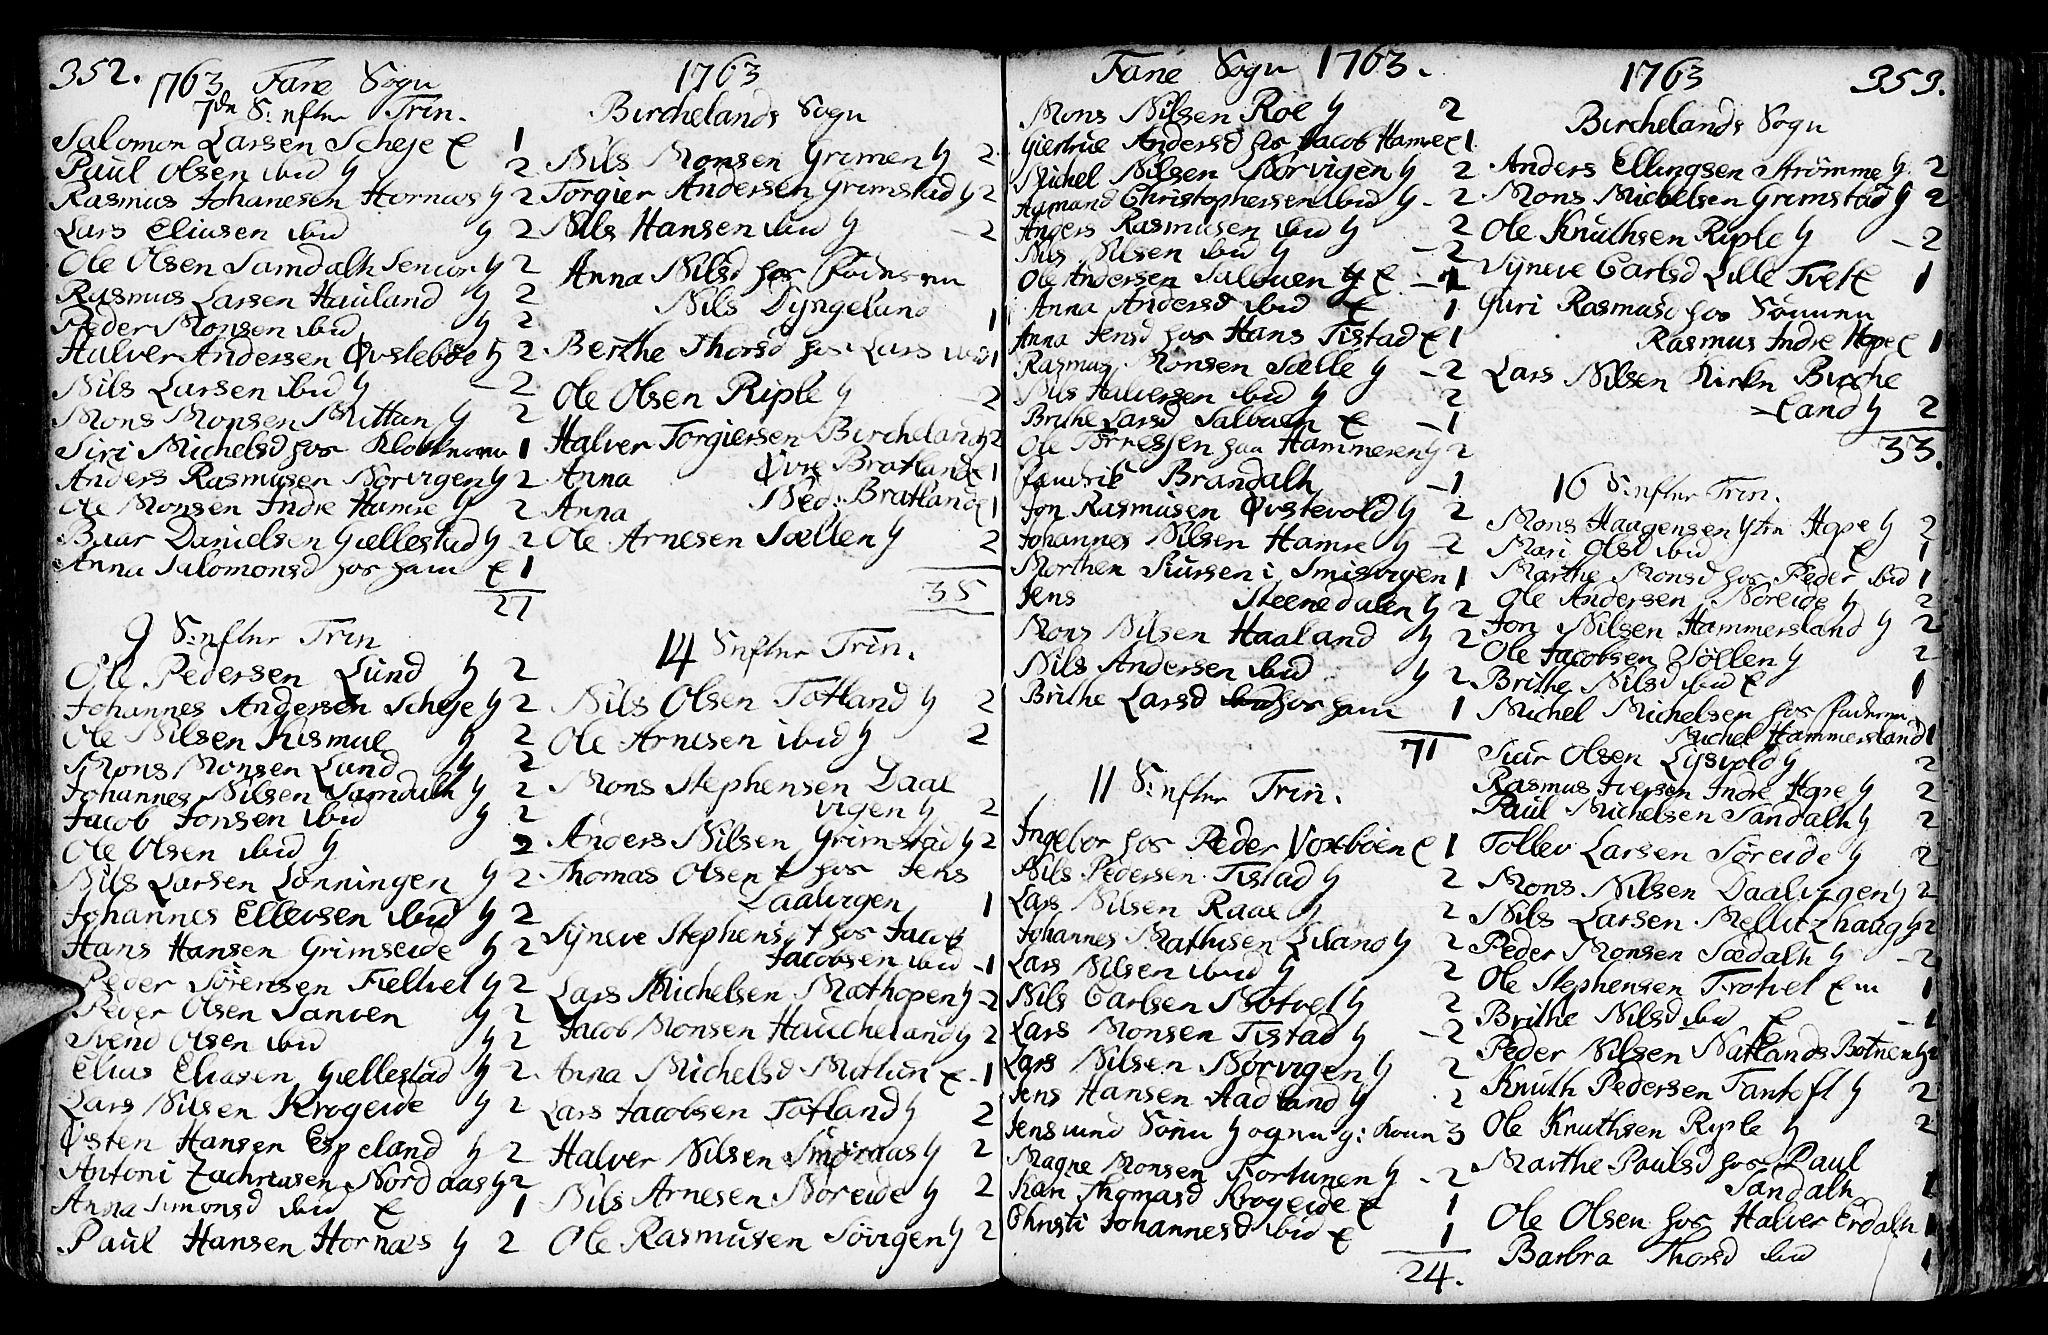 352. 1763 Fane Sogn
7de S: efter Trin.
Salomon Larsen Scheje E 1
Paul Olsen ibid y 2
Rasmus Johanesen Hornæs y 2
Lars Eliasen ibid y 2
Ole Olsen Samdalh Senior y 2
Rasmus Larsen Hauland y 2
Peder Monsen ibid y 2
Halver Andersen Øvsteböe y 2
Nils Larsen ibid y 2
Mons Monsen Mittun y 2
Siri Michelsd hos Klokkeren 1
Anders Rasmusen Norvigen y 2
Ole Monsen Indre Hamre y 2
Baar Danielsen Giellestad y 2
Anna Salomonsd hos ham E 1
27
9 S: efter Trin
Ole Pedersen Lund y 2
Johannes Andersen Scheje y 2
Ole Nilsen Rismul y 2
Mons Monsen Lund y 2
Johannes Nilsen Samdalh y 2
Jacob Jonsen ibid y 2
Ole Olsen ibid y 2
Nils Larsen Lønningen y 2
Johannes Ellevsen ibid y 2
Hans Hansen Grimseide y 2
Peder Sörensen Fieltvet y 2
Peder Olsen Sanven y 2
Svend Olsen ibid y 2
Elias Eliasen Giellestad y 2
Lars Nilsen Krogeide y 2
Østen Hansen Espeland y 2
Antoni Zachriasen Nordaas y 2
Anna Simonsd ibid E 1
Paul Hansen Hornæs y 2
1763
Birchelands Sogn
Nils Monsen Grimen y 2
Torgier Andersen Grimstad y 2
Nils Hansen ibid y 2
Anna Nilsd hos Faderen
Nils Dyngeland 1
Berthe Thorsd hos Lars ibid 1
Ole Olsen Riple y 2
Halver Torgiersen Bircheland y 2
Anna Øvre Bratland E 1
Anna Ned: Bratland E 1
Ole Arnesen Sællen y 2
35
14 S efter Trin.
Nils Olsen Totland y 2
Ole Arnesen ibid y 2
Mons Stephensen Daal
vigen y 2
Anders Nilsen Grimstad y 2
Thomas Olsen t hos Jens
Daalvigen 1
Syneve Stephens t hos Jacob
Jacobsen ibid 1
Lars Michelsen Mathopen y 2
Jacob Monsen Haucheland y 2
Anna Michelsd Mittun E 1
Lars Jacobsen Totland y 2
Halver Nilsen Smöraas y 2
Nils Arnesen Noreide y 2
Ole Rasmusen Sövigen y 2
Fane Sogn 1763.
Mons Nilsen Roe y 2
Giertrue Andersd hos Jacob Hamre E 1
Michel Nilsen Norvigen y 2
Aamund Christophersen ibid y 2
Anders Rasmusen ibid y 2
Nils Nilsen ibid y 2
Ole Andersen Salbuen E 1
Anna Andersd ibid E 1
Anna Jensd hos Hans Tistad E 1
Rasmus Monsen Sælle y 2
Nils Halversen ibid y 2
Brithe Larsd Salbuen E 1
Ole Tørresen paa Hammeren y 2
Brandalh 1
Jon Rasmusen Øvstevold y 2
Johannes Nilsen Hamre y 2
Morthen Siursen i Smisvigen 1
Jens Steenedalen y 2
Mons Nilsen Haaland y 2
Nils Andersen ibid y 2
Brithe Larsd hos ham 1
71
11 S: efter Trin.
Ingebor hos Peder Voxboen E 1
Nils Pedersen Tistad y 2
Lars Nilsen Raae y 2
Johannes Mathisen Liland y 2
Lars Nilsen ibid y 2
Nils Carlsen Nøtvet y 2
Lars Monsen Tistad y 2
Lars Nilsen Norvigen y 2
Jens Hansen Aadland y 2
Jens 3
Magne Monsen Fortunen y 2
Kari Thomasd Krogeide E 1
Christi Johannesd ibid E 1
24.
1763 353.
Birchelands Sogn
Anders Ellingsen Strømme y 2
Mons Michelsen Grimstad y 2
Ole Knuthsen Riple y 2
Syneve Carlsd Lille Tvet E 1
Guri Rasmusd hos Sønnen
Rasmus Indre Hope E 1
Lars Nilsen Kirke Birche
land y 2
33.
16 S: efter Trin.
Mons Haagensen Ytre Hope y 2
Mari Olsd ibid E 1
Marthe Monsd hos Peder ibid 1
Ole Andersen Noreide y 2
Jon Nilsen Hammersland y 2
Ole Jacobsen Söllen y 2
Brithe Nilsd ibid E 1
Michel Michelsen hos Faderen
Michel Hammersland 1
Siur Olsen Lysvold y 2
Rasmus Iversen Indre Hope y 2
Paul Michelsen Sandalh y 2
Tollev Larsen Søreide y 2
Mons Nilsen Daalvigen y 2
Nils Larsen Mellitzhaug y 2
Peder Monsen Sædalh y 2
Ole Stephensen Trotvet E m 1
Brithe Nilsd ibid E 1
Peder Nilsen Natlands Botnen y 2
Knuth Pedersen Fantoft y 2
Ole Knuthsen Riple y 2
Marthe Paulsd hos Paul
Sandalh 1
Ole Olsen hos Halver Erdalh 1
Barbra Thorsd ibid 1